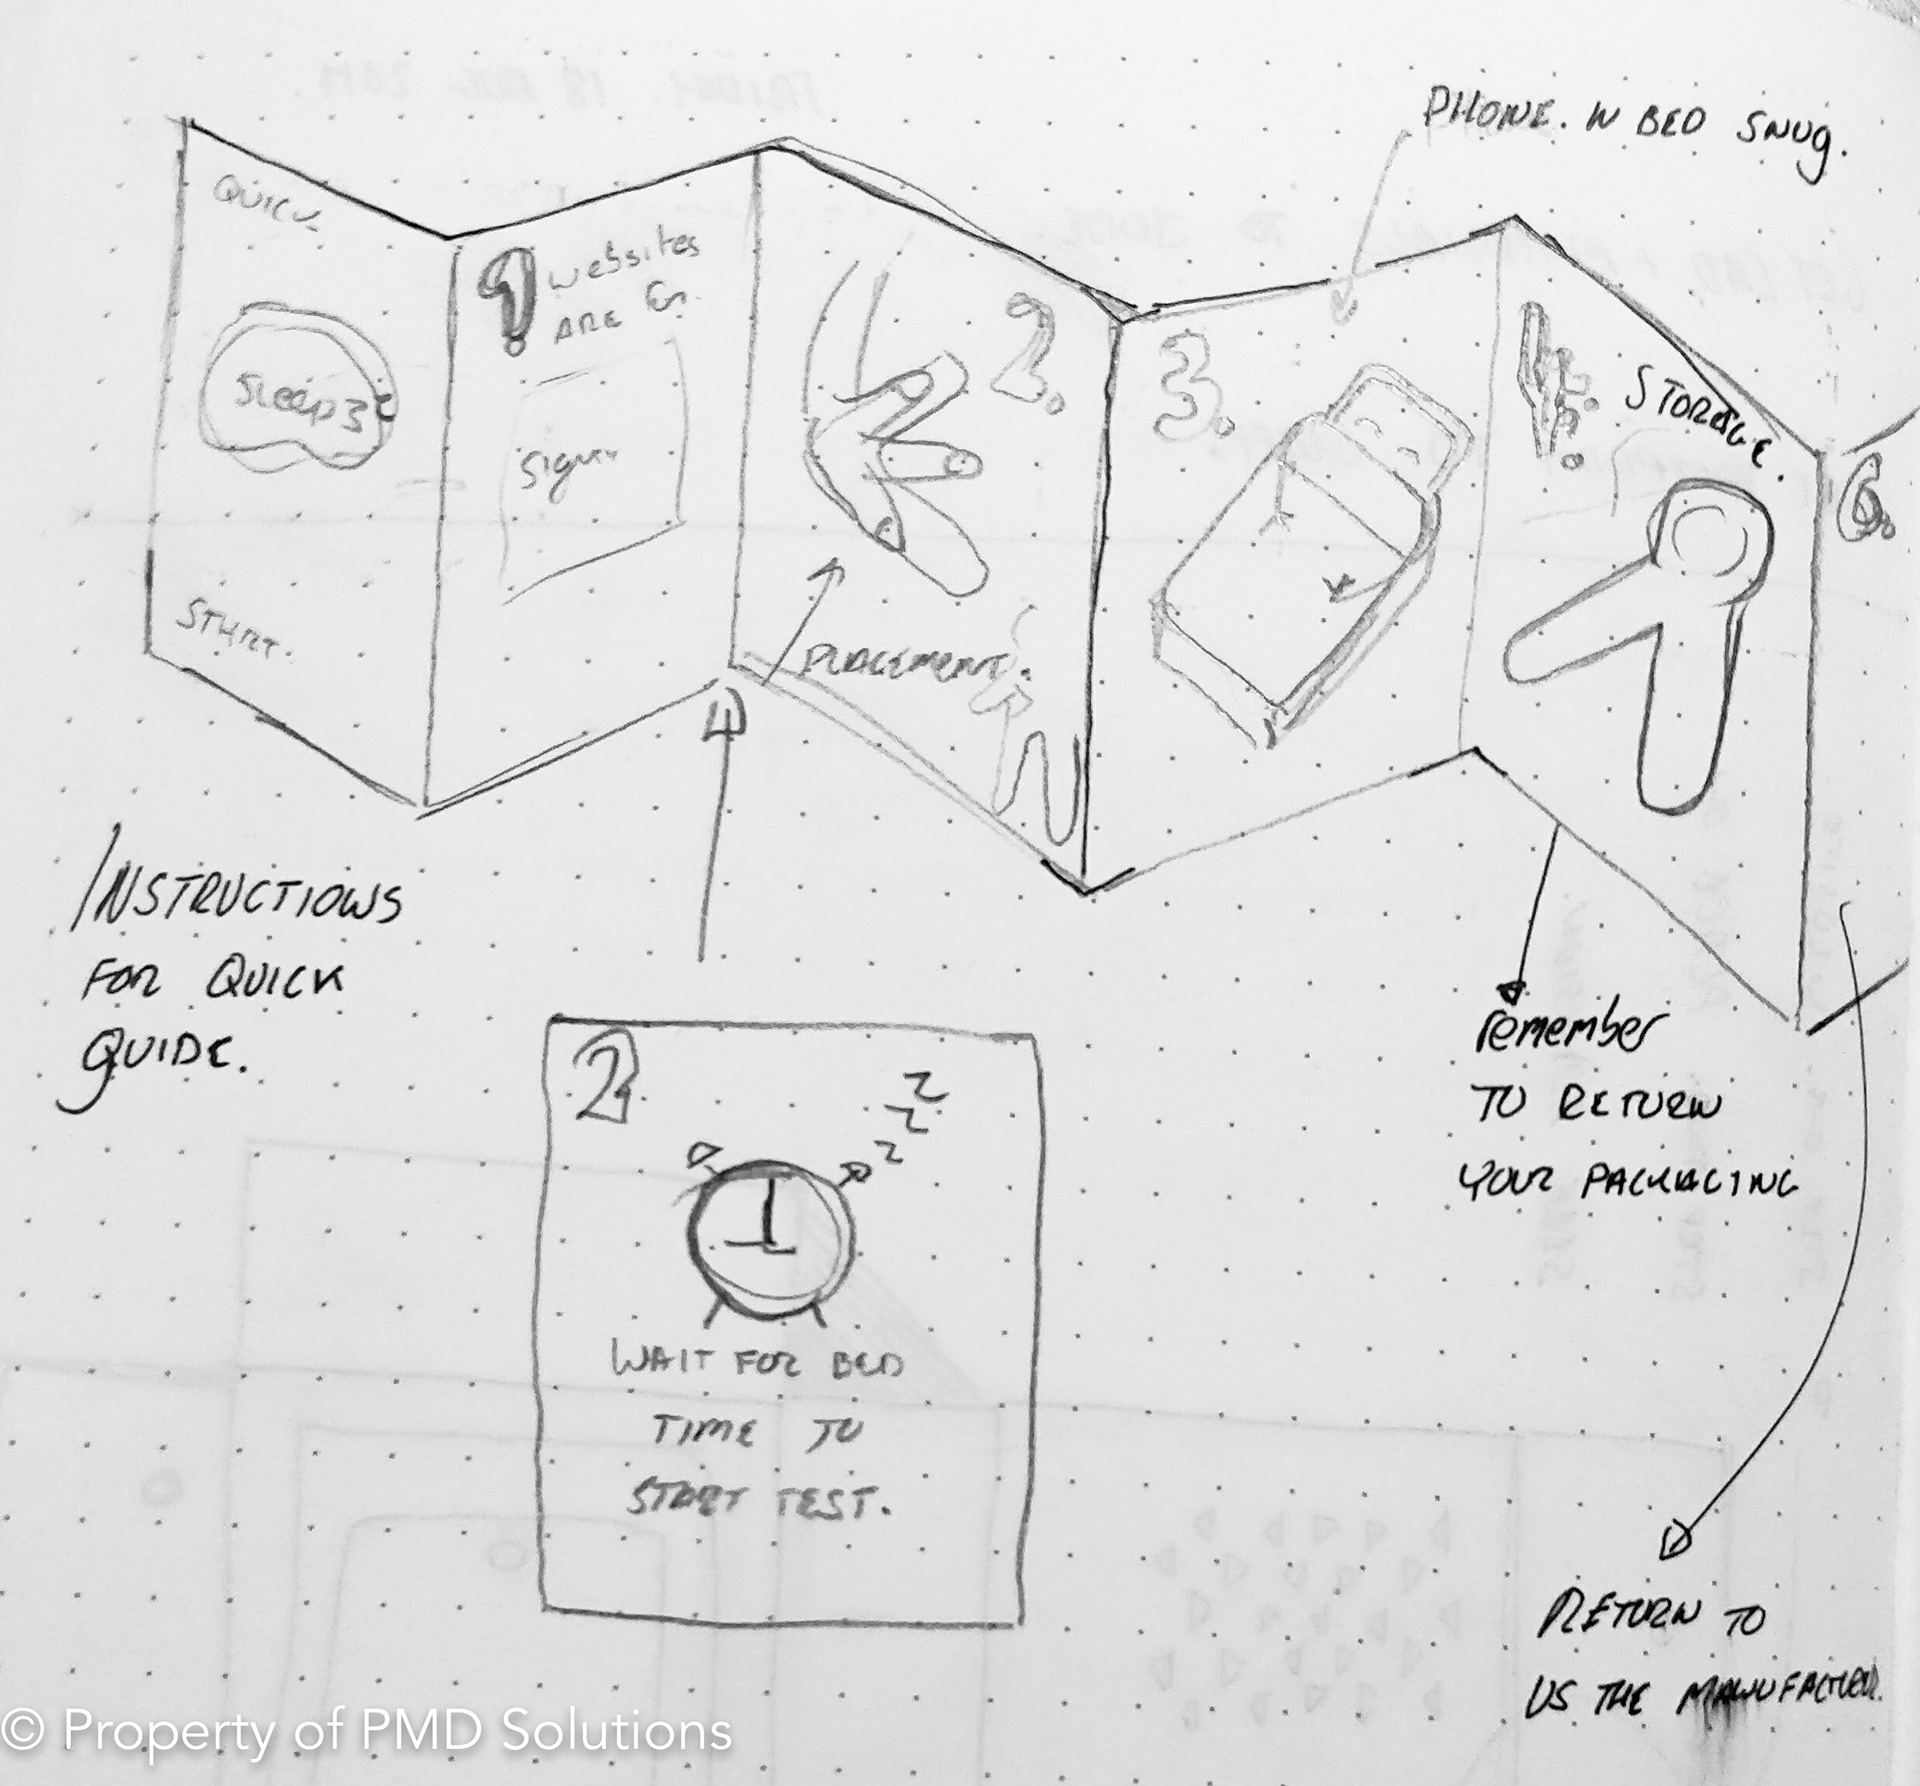 PHONE. IN BED SNUG.
QUICK
Sleep3
START.
1.
websites
ARE
Sign
2.
PLACEMENT.
3.
STORAGE.
6.
INSTRUCTIONS
FOR QUICK
GUIDE.
2
z
z
z
WAIT FOR BED
TIME TO
START TEST.
remember
TO RETURN
YOUR PACKAGING
RETURN TO
US THE MANUFACTURER.
© Property of PMD Solutions